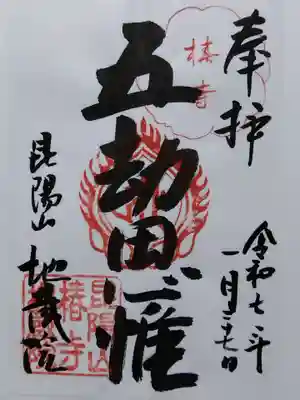 奉拝
令和七年
一月二七日
椿寺
五劫思惟
昆陽山 地蔵院
昆陽山
椿寺
地蔵院